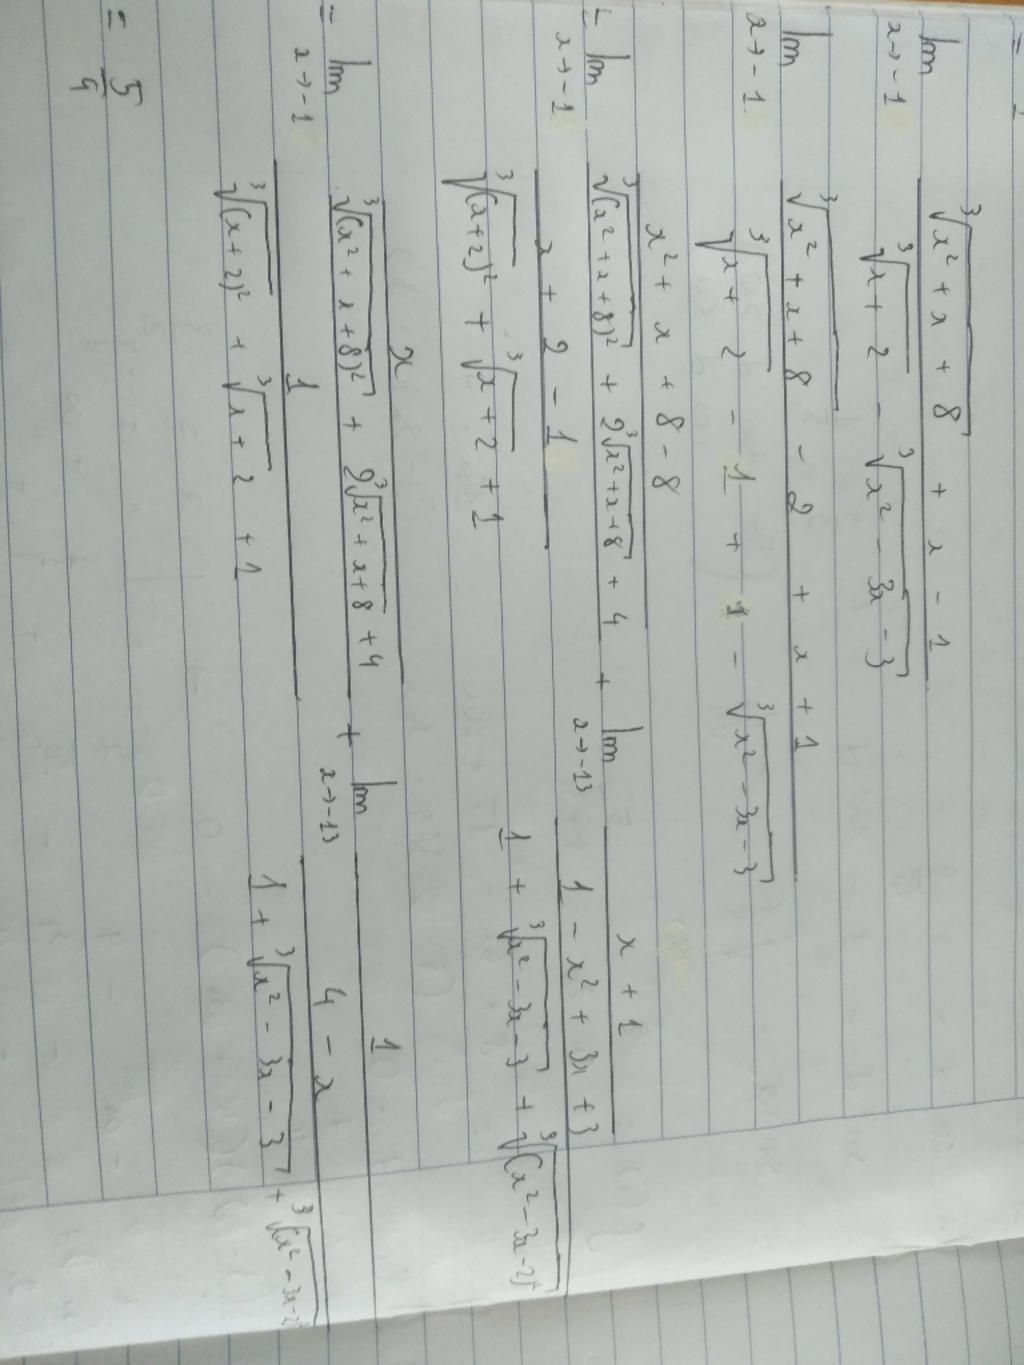 =
lim x→-1 (∛(x² + x + 8) + x - 1) / (∛(x + 2) - ∛(x² - 3x - 3))
lim x→-1 (∛(x² + x + 8) - 2 + x + 1) / (∛(x + 2) - 1 + 1 - ∛(x² - 3x - 3))
= lim x→-1 ((x² + x + 8 - 8) / (∛(x² + x + 8)² + 2∛(x² + x + 8) + 4)) / ((x + 2 - 1) / (∛(x + 2)² + ∛(x + 2) + 1)) + lim x→-13 (x + 1) / ((1 - x² + 3x + 3) / (1 + ∛(x² - 3x - 3) + ∛(x² - 3x - 2)²))
= lim x→-1 (x / (∛(x² + x + 8)² + 2∛(x² + x + 8) + 4)) / (1 / (∛(x + 2)² + ∛(x + 2) + 1)) + lim x→-13 1 / ((4 - x) / (1 + ∛(x² - 3x - 3) + ∛(x² - 3x - 2)))
= 5/4